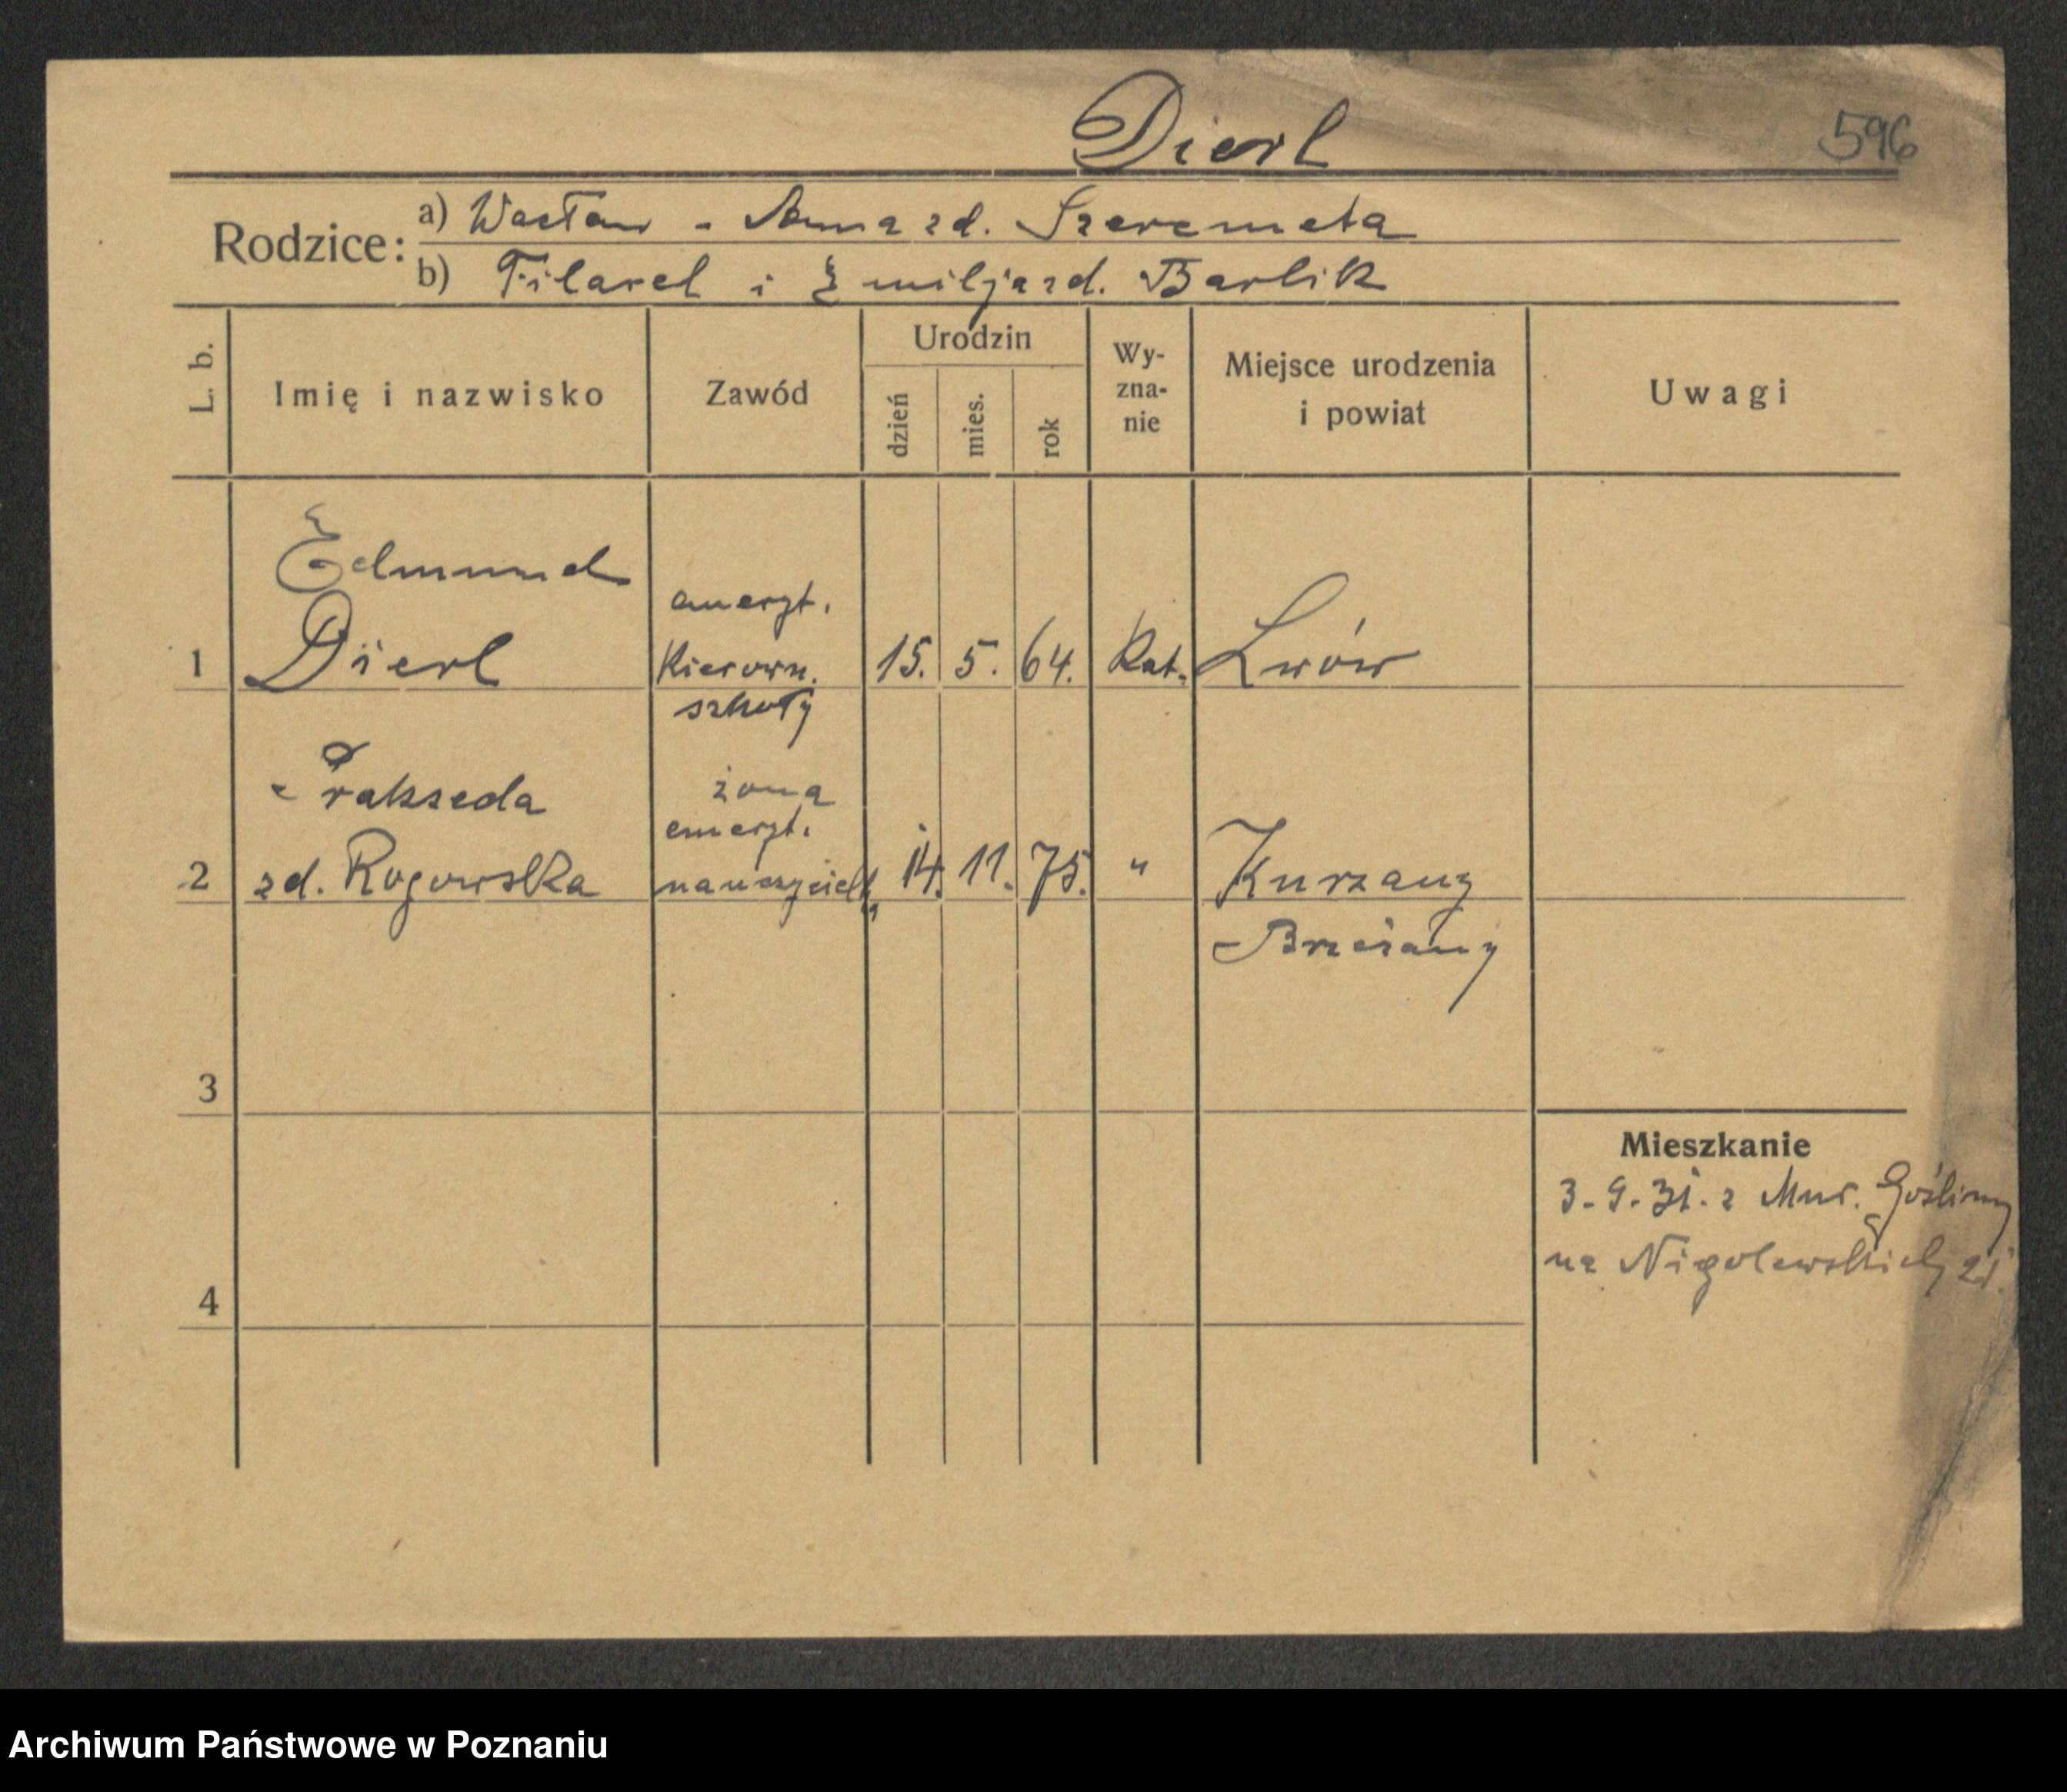 Dierl
596
Rodzice: a) Wacław - Anna zd. Szeremeta
b) Filaret i Emilja zd. Barlik
L. b.
Imię i nazwisko
Zawód
Urodzin
dzień
mies.
rok
Wy-
zna-
nie
Miejsce urodzenia
i powiat
Uwagi
Edmund
emeryt.
1 Dierl Kierown. 15. 5. 64. Kat. Lwów
szkoły
Prakseda żona
emeryt.
2 zd. Rogowska nauczyciel. 14. 11. 75. " Kurzany
Brzeżany
3
Mieszkanie
3.9.31. z Mur. Gośliny
na 21.
4
Archiwum Państwowe w Poznaniu